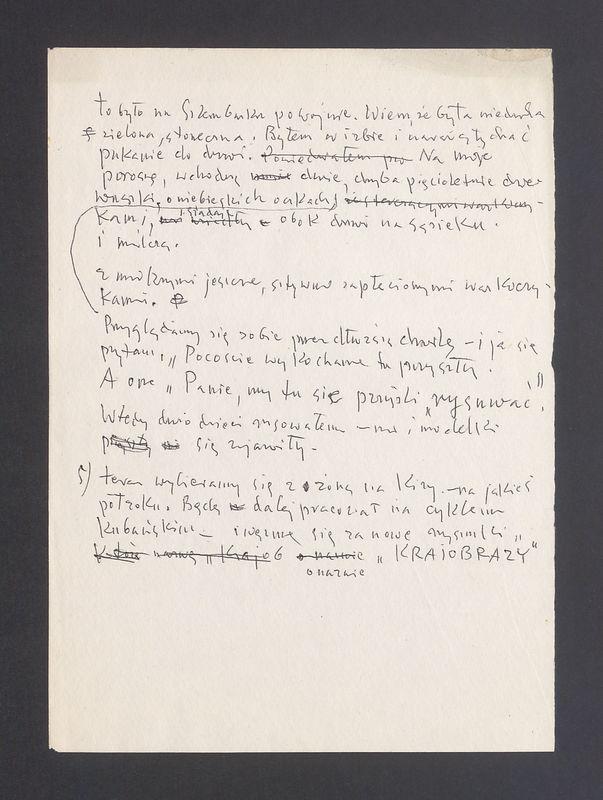 to było na Szembarku po wojnie. Wiem, że była niedziela
zielona, słoneczna. Byłem w izbie i naraz słychać
pukanie do drzwi. Powiedziałem pro Na moje
proszę, wchodzą dwie, chyba pięcioletnie dziew-
uszki, o niebieskich oczkach,
kami, i siadają obok drzwi na sąsieku.
i milczą.
z mysimi jeszcze, sztywno zaplecionymi warkoczy-
kami.
Przyglądamy się sobie przez dłuższą chwilę – i ja się
pytam: „Pocoście wy kochane tu przyszły.
A one „Panie, my tu się przyśli „rysuwać".
Wtedy dużo dzieci rysowałem – no i modelki
się zjawiły.
5) teraz wybieramy się z żoną na Kizy. – na jakieś
półroku. Będę dalej pracował na cyklem
kubańskim – i wezmę się za nowe rysunki „
nazwę „Krajob o nazwie „KRAJOBRAZY"
o nazwie